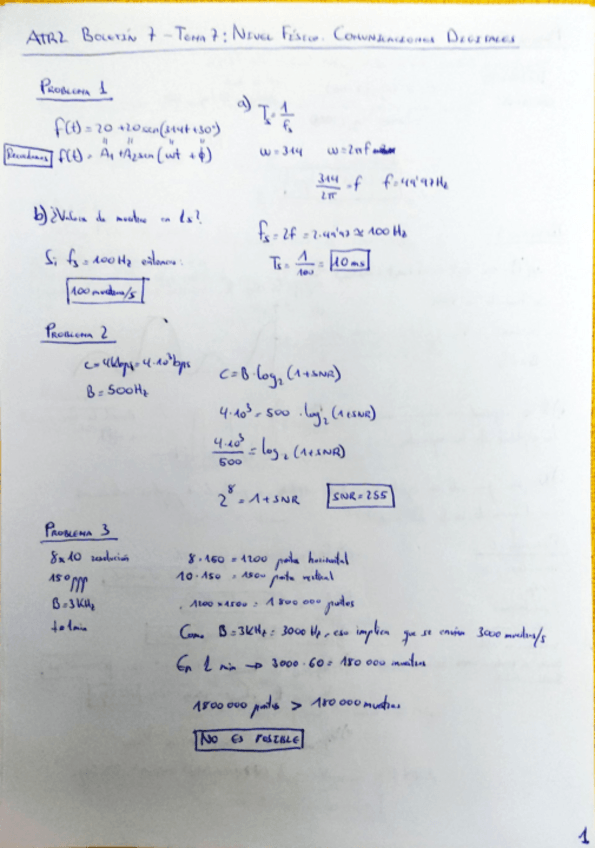 ATR2 BOLETÍN 7 - TEMA 7: NIVEL FÍSICO. COMUNICACIONES DIGITALES
PROBLEMA 1
f(t) = 20 + 20 sen(314t + 30°)
Recordamos f(t) = A₁ + A₂ sen(wt + ϕ)
a) Ts = 1/fs
w = 314 w = 2πf
314/2π = f f = 49'97 Hz
fs = 2f = 2·49'97 ≈ 100 Hz
Ts = 1/100 = 10 ms
b) ¿Valores de muestreo en 1s?
Si fs = 100 Hz entonces:
100 muestras/s
PROBLEMA 2
C = 4 kbps = 4·10³ bps
B = 500 Hz
C = B · log₂ (1 + SNR)
4·10³ = 500 · log₂ (1 + SNR)
4·10³/500 = log₂ (1 + SNR)
2⁸ = 1 + SNR SNR = 255
PROBLEMA 3
8x10 resolución
150 ppp
B = 3 KHz
t = 1 min
8 · 150 = 1200 puntos horizontal
10 · 150 = 1500 puntos vertical
1200 x 1500 = 1 800 000 puntos
Como B = 3 KHz = 3000 Hz, eso implica que se envían 3000 muestras/s
En 1 min → 3000 · 60 = 180 000 muestras
1800 000 puntos > 180 000 muestras
NO ES POSIBLE
1